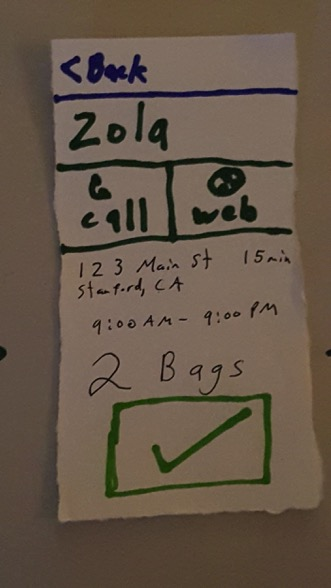 <Back
Zola
call web
123 Main St 15min
Stanford, CA
9:00 AM - 9:00 PM
2 Bags